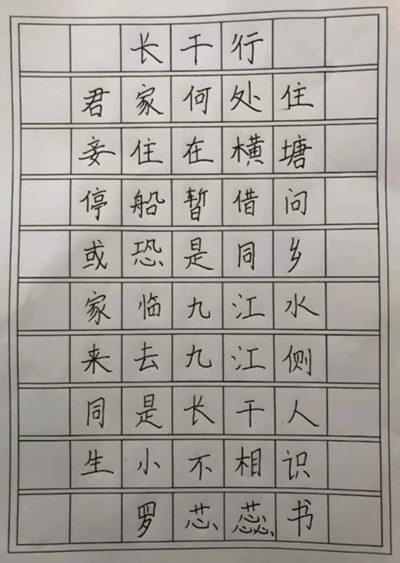 长干行
君家何处住
妾住在横塘
停船暂借问
或恐是同乡
家临九江水
来去九江侧
同是长干人
生小不相识
罗芯蕊书